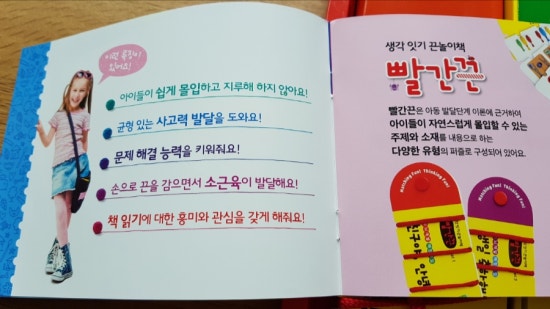 이런 특징이
있어요!
아이들이 쉽게 몰입하고 지루해 하지 않아요!
균형 있는 사고력 발달을 도와요!
문제 해결 능력을 키워줘요!
손으로 끈을 감으면서 소근육이 발달해요!
책 읽기에 대한 흥미와 관심을 갖게 해줘요!
생각 잇기 끈놀이책
빨간끈
빨간끈은 아동 발달단계 이론에 근거하여
아이들이 자연스럽게 몰입할 수 있는
주제와 소재를 내용으로 하는
다양한 유형의 퍼즐로 구성되어 있어요.
Matching Fun! Thinking Fun!
Matching Fun! Thinking Fun!